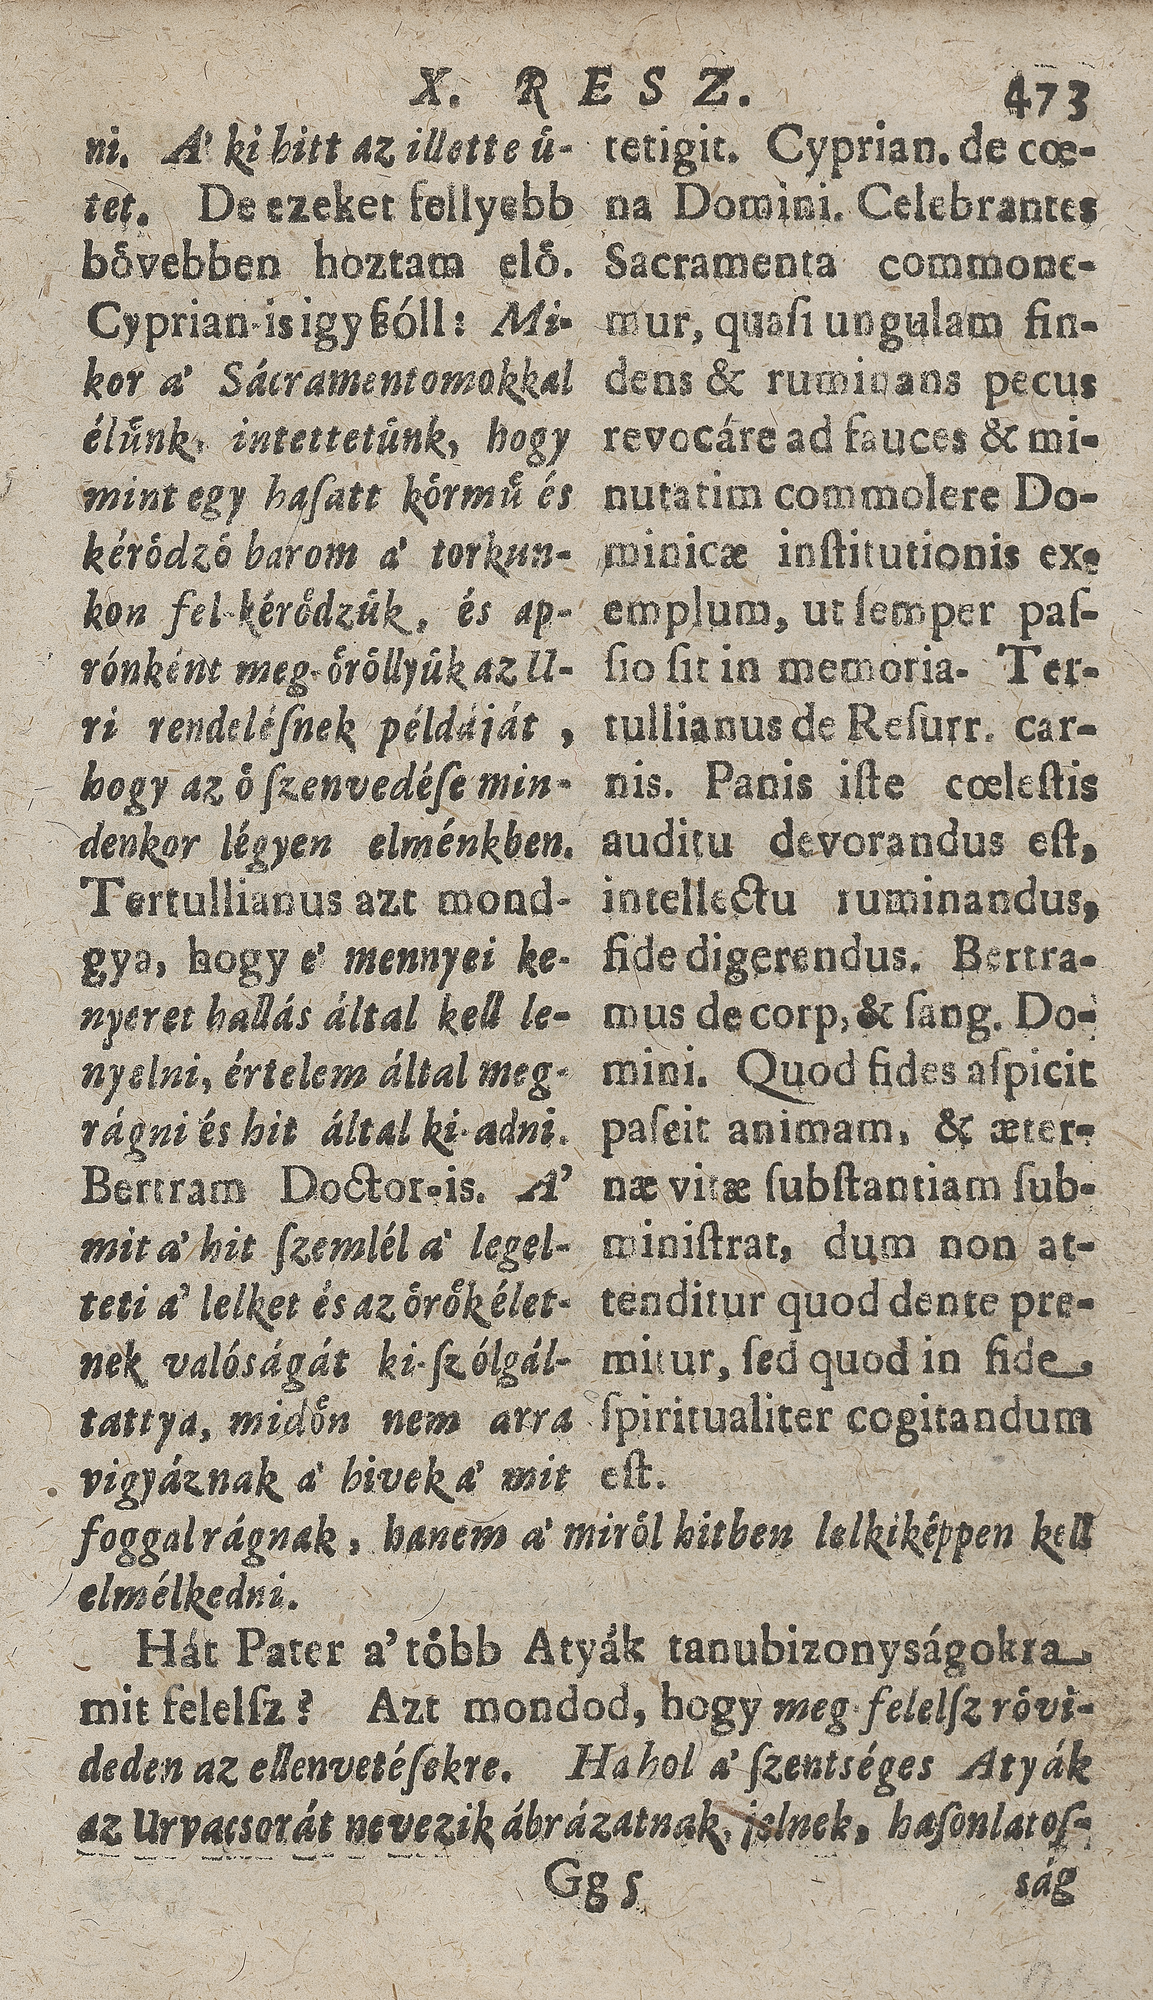 X. RESZ. 473
ni. A' ki hitt az illette ű-
tet. De ezeket fellyebb
bővebben hoztam elő.
Cyprian-is igy ßóll: Mi-
kor a' Sácramentomokkal
élűnk, intettetűnk, hogy
mint egy haſatt kőrmű és
kérődző barom a' torkun-
kon fel-kérődzűk, és ap-
rónként meg-őrőllyűk az U-
ri rendeléſnek példáját,
hogy az ő ſzenvedéſe min-
denkor légyen elménkben.
Tertullianus azt mond-
gya, hogy e' mennyei ke-
nyeret hallás által kell le-
nyelni, értelem által meg-
rágni és hit által ki-adni.
Bertram Doctor-is. A'
mit a' hit ſzemlél a' legel-
teti a' lelket és az őrők élet-
nek valóságát ki-ſzólgál-
tattya, midőn nem arra
vigyáznak a' hivek a' mit
tetigit. Cyprian. de cœ-
na Domini. Celebrantes
Sacramenta commone-
mur, quaſi ungulam fin-
dens & ruminans pecus
revocáre ad fauces & mi-
nutatim commolere Do-
minicæ inſtitutionis ex-
emplum, ut ſemper paſ-
ſio ſit in memoria. Ter-
tullianus de Reſurr. car-
nis. Panis iſte cœleſtis
auditu devorandus eſt,
intellectu ruminandus,
fide digerendus. Bertra-
mus de corp, & ſang. Do-
mini. Quod fides aſpicit
paſcit animam, & æter-
næ vitæ ſubſtantiam ſub-
miniſtrat, dum non at-
tenditur quod dente pre-
mitur, ſed quod in fide,
ſpiritualiter cogitandum
eſt.
foggal rágnak, hanem a' miről hitben lelkiképpen kell
elmélkedni.
Hát Pater a' tőbb Atyák tanubizonyságokra,
mit felelſz? Azt mondod, hogy meg-felelſz rővi-
deden az ellenvetéſekre. Ha hol a' ſzentséges Atyák
az Urvacsorát nevezik ábrázatnak, jelnek, haſonlatoſ-
Gg 5 ság